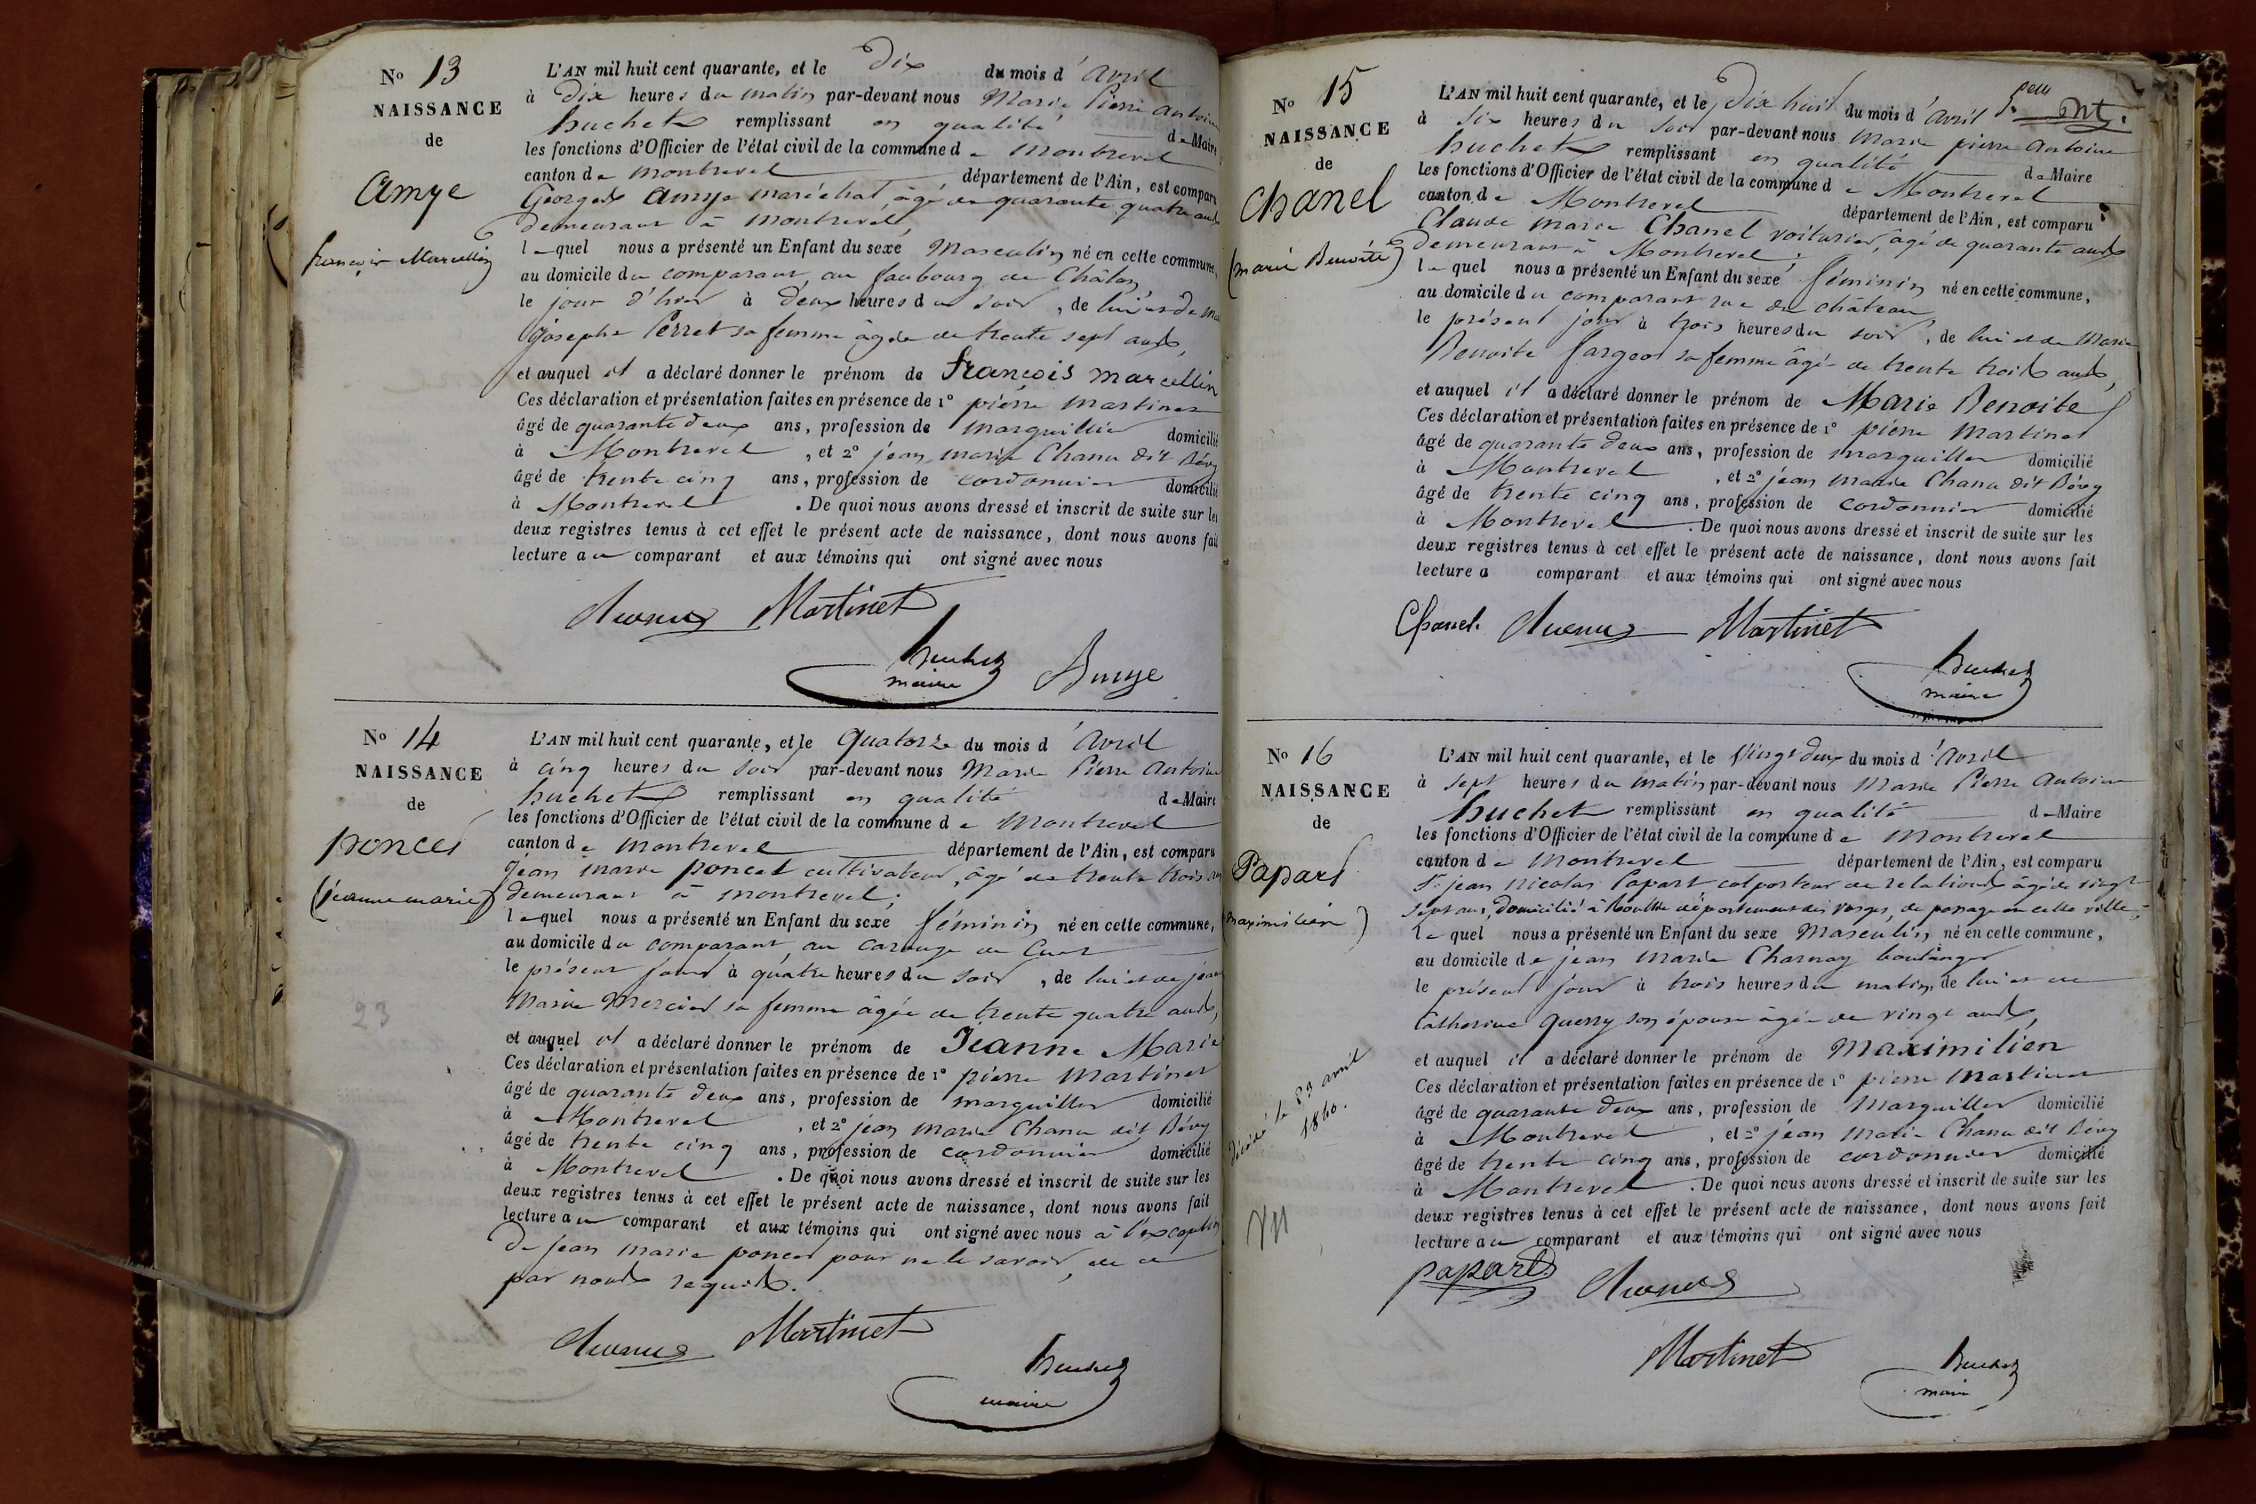 No 13
NAISSANCE
de
Amye
françois Marcellin
L'AN mil huit cent quarante, et le Dix du mois d'Avril
à Dix heures du matin par-devant nous Marie Pierre Antoine
huchet remplissant en qualité de Maire
les fonctions d'Officier de l'état civil de la commune de Montrevel
canton de Montrevel département de l'Ain, est comparu
Georges Amye maréchal, âgé de quarante quatre ans
demeurant à Montrevel,
lequel nous a présenté un Enfant du sexe Masculin né en cette commune,
au domicile du comparant, au faubourg de Châlon
le jour d'hier à deux heures du soir, de lui et de
josephe Perret sa femme âgée de trente sept ans,
et auquel il a déclaré donner le prénom de françois Marcellin
Ces déclaration et présentation faites en présence de 1º pierre Martinet
âgé de quarante deux ans, profession de marguillier domicilié
à Montrevel, et 2º jean marie Chanu dit Bévy
âgé de trente cinq ans, profession de cordonnier domicilié
à Montrevel. De quoi nous avons dressé et inscrit de suite sur les
deux registres tenus à cet effet le présent acte de naissance, dont nous avons fait
lecture au comparant et aux témoins qui ont signé avec nous
Martinet
huchet
maire
Amye
No 14
NAISSANCE
de
poncet
(jeanne marie)
23
L'AN mil huit cent quarante, et le Quatorze du mois d'Avril
à cinq heures du soir par-devant nous Marie Pierre Antoine
huchet remplissant en qualité de Maire
les fonctions d'Officier de l'état civil de la commune de Montrevel
canton de Montrevel département de l'Ain, est comparu
Jean marie poncet cultivateur, âgé de trente trois ans
demeurant à Montrevel;
lequel nous a présenté un Enfant du sexe féminin né en cette commune,
au domicile du comparant, au carouge de Cuet
le présent jour à quatre heures du soir, de lui et de jeanne
Marie Mercier sa femme âgée de trente quatre ans,
et auquel il a déclaré donner le prénom de Jeanne Marie
Ces déclaration et présentation faites en présence de 1º pierre Martinet
âgé de quarante deux ans, profession de marguillier domicilié
à Montrevel, et 2º jean marie Chanu dit Bévy
âgé de trente cinq ans, profession de cordonnier domicilié
à Montrevel. De quoi nous avons dressé et inscrit de suite sur les
deux registres tenus à cet effet le présent acte de naissance, dont nous avons fait
lecture au comparant et aux témoins qui ont signé avec nous à l'exception
de jean marie poncet pour ne le savoir, de ce
par nous requis.
Martinet
huchet
maire
No 15
NAISSANCE
de
Chanel
(marie Benoite)
L'AN mil huit cent quarante, et le Dix huit du mois d'Avril
à six heures du soir par-devant nous Marie pierre Antoine
huchet remplissant en qualité de Maire
les fonctions d'Officier de l'état civil de la commune de Montrevel
canton de Montrevel département de l'Ain, est comparu
Claude marie Chanel voiturier, âgé de quarante ans
demeurant à Montrevel;
lequel nous a présenté un Enfant du sexe féminin né en cette commune,
au domicile du comparant rue du château
le présent jour à trois heures du soir, de lui et de Marie
Benoite fargeot sa femme âgée de trente trois ans,
et auquel il a déclaré donner le prénom de Marie Benoite
Ces déclaration et présentation faites en présence de 1º pierre Martinet
âgé de quarante deux ans, profession de marguillier domicilié
à Montrevel, et 2º jean marie Chanu dit Bévy
âgé de trente cinq ans, profession de cordonnier domicilié
à Montrevel. De quoi nous avons dressé et inscrit de suite sur les
deux registres tenus à cet effet le présent acte de naissance, dont nous avons fait
lecture a comparant et aux témoins qui ont signé avec nous
Chanel Martinet
huchet
maire
No 16
NAISSANCE
de
Papart
(maximilien)
Décédé le 29 avril
1840.
L'AN mil huit cent quarante, et le Vingt deux du mois d'Avril
à sept heures du matin par-devant nous Marie Pierre Antoine
huchet remplissant en qualité de Maire
les fonctions d'Officier de l'état civil de la commune de Montrevel
canton de Montrevel département de l'Ain, est comparu
Sr jean nicolas Papart colporteur de relations âgé de vingt
sept ans, domicilié à département des Vosges, de passage en cette ville;
lequel nous a présenté un Enfant du sexe Masculin né en cette commune,
au domicile de jean marie Charnay boulanger
le présent jour à trois heures du matin, de lui et de
Catherine Querry son épouse âgée de vingt ans,
et auquel il a déclaré donner le prénom de Maximilien
Ces déclaration et présentation faites en présence de 1º pierre Martinet
âgé de quarante deux ans, profession de Marguillier domicilié
à Montrevel, et 2º jean Marie Chanu dit Bévy
âgé de trente cinq ans, profession de cordonnier domicilié
à Montrevel. De quoi nous avons dressé et inscrit de suite sur les
deux registres tenus à cet effet le présent acte de naissance, dont nous avons fait
lecture au comparant et aux témoins qui ont signé avec nous
papart
Martinet
huchet
maire